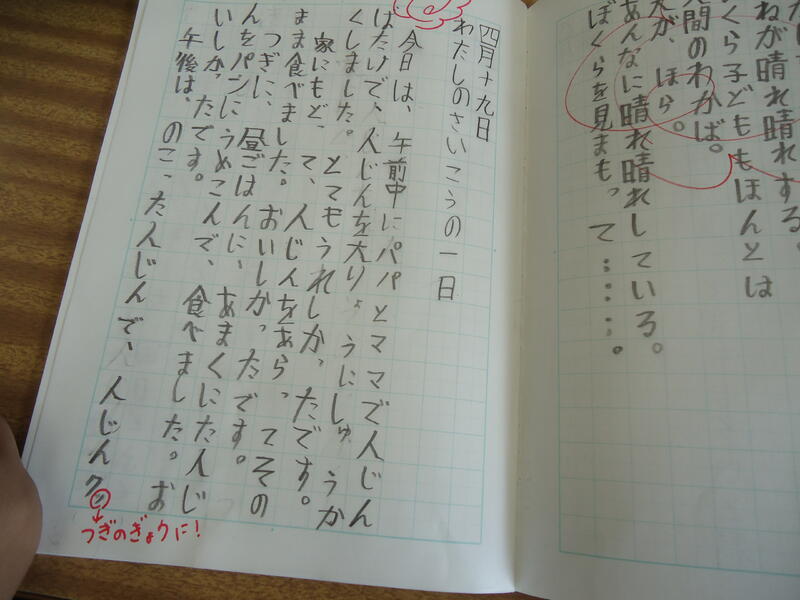 ねが晴れ晴れする。
くら子どももほんとは
人間のわかば。
が、ほら。
あんなに晴れ晴れしている。
ぼくらを見まもって……。
四月十九日
わたしのさいこうの一日
今日は、午前中にパパとママで人じん
はたけで、人じんを大りょうにしゅうか
くしました。とてもうれしかったです。
家にもどって、人じんをあらってその
まま食べました。おいしかったです。
つぎに、昼ごはんに、あまくにた人じ
んをパンにうめこんで、食べました。お
いしかったです。
午後は、のこった人じんで、人じんクッ
つぎのぎょうに!